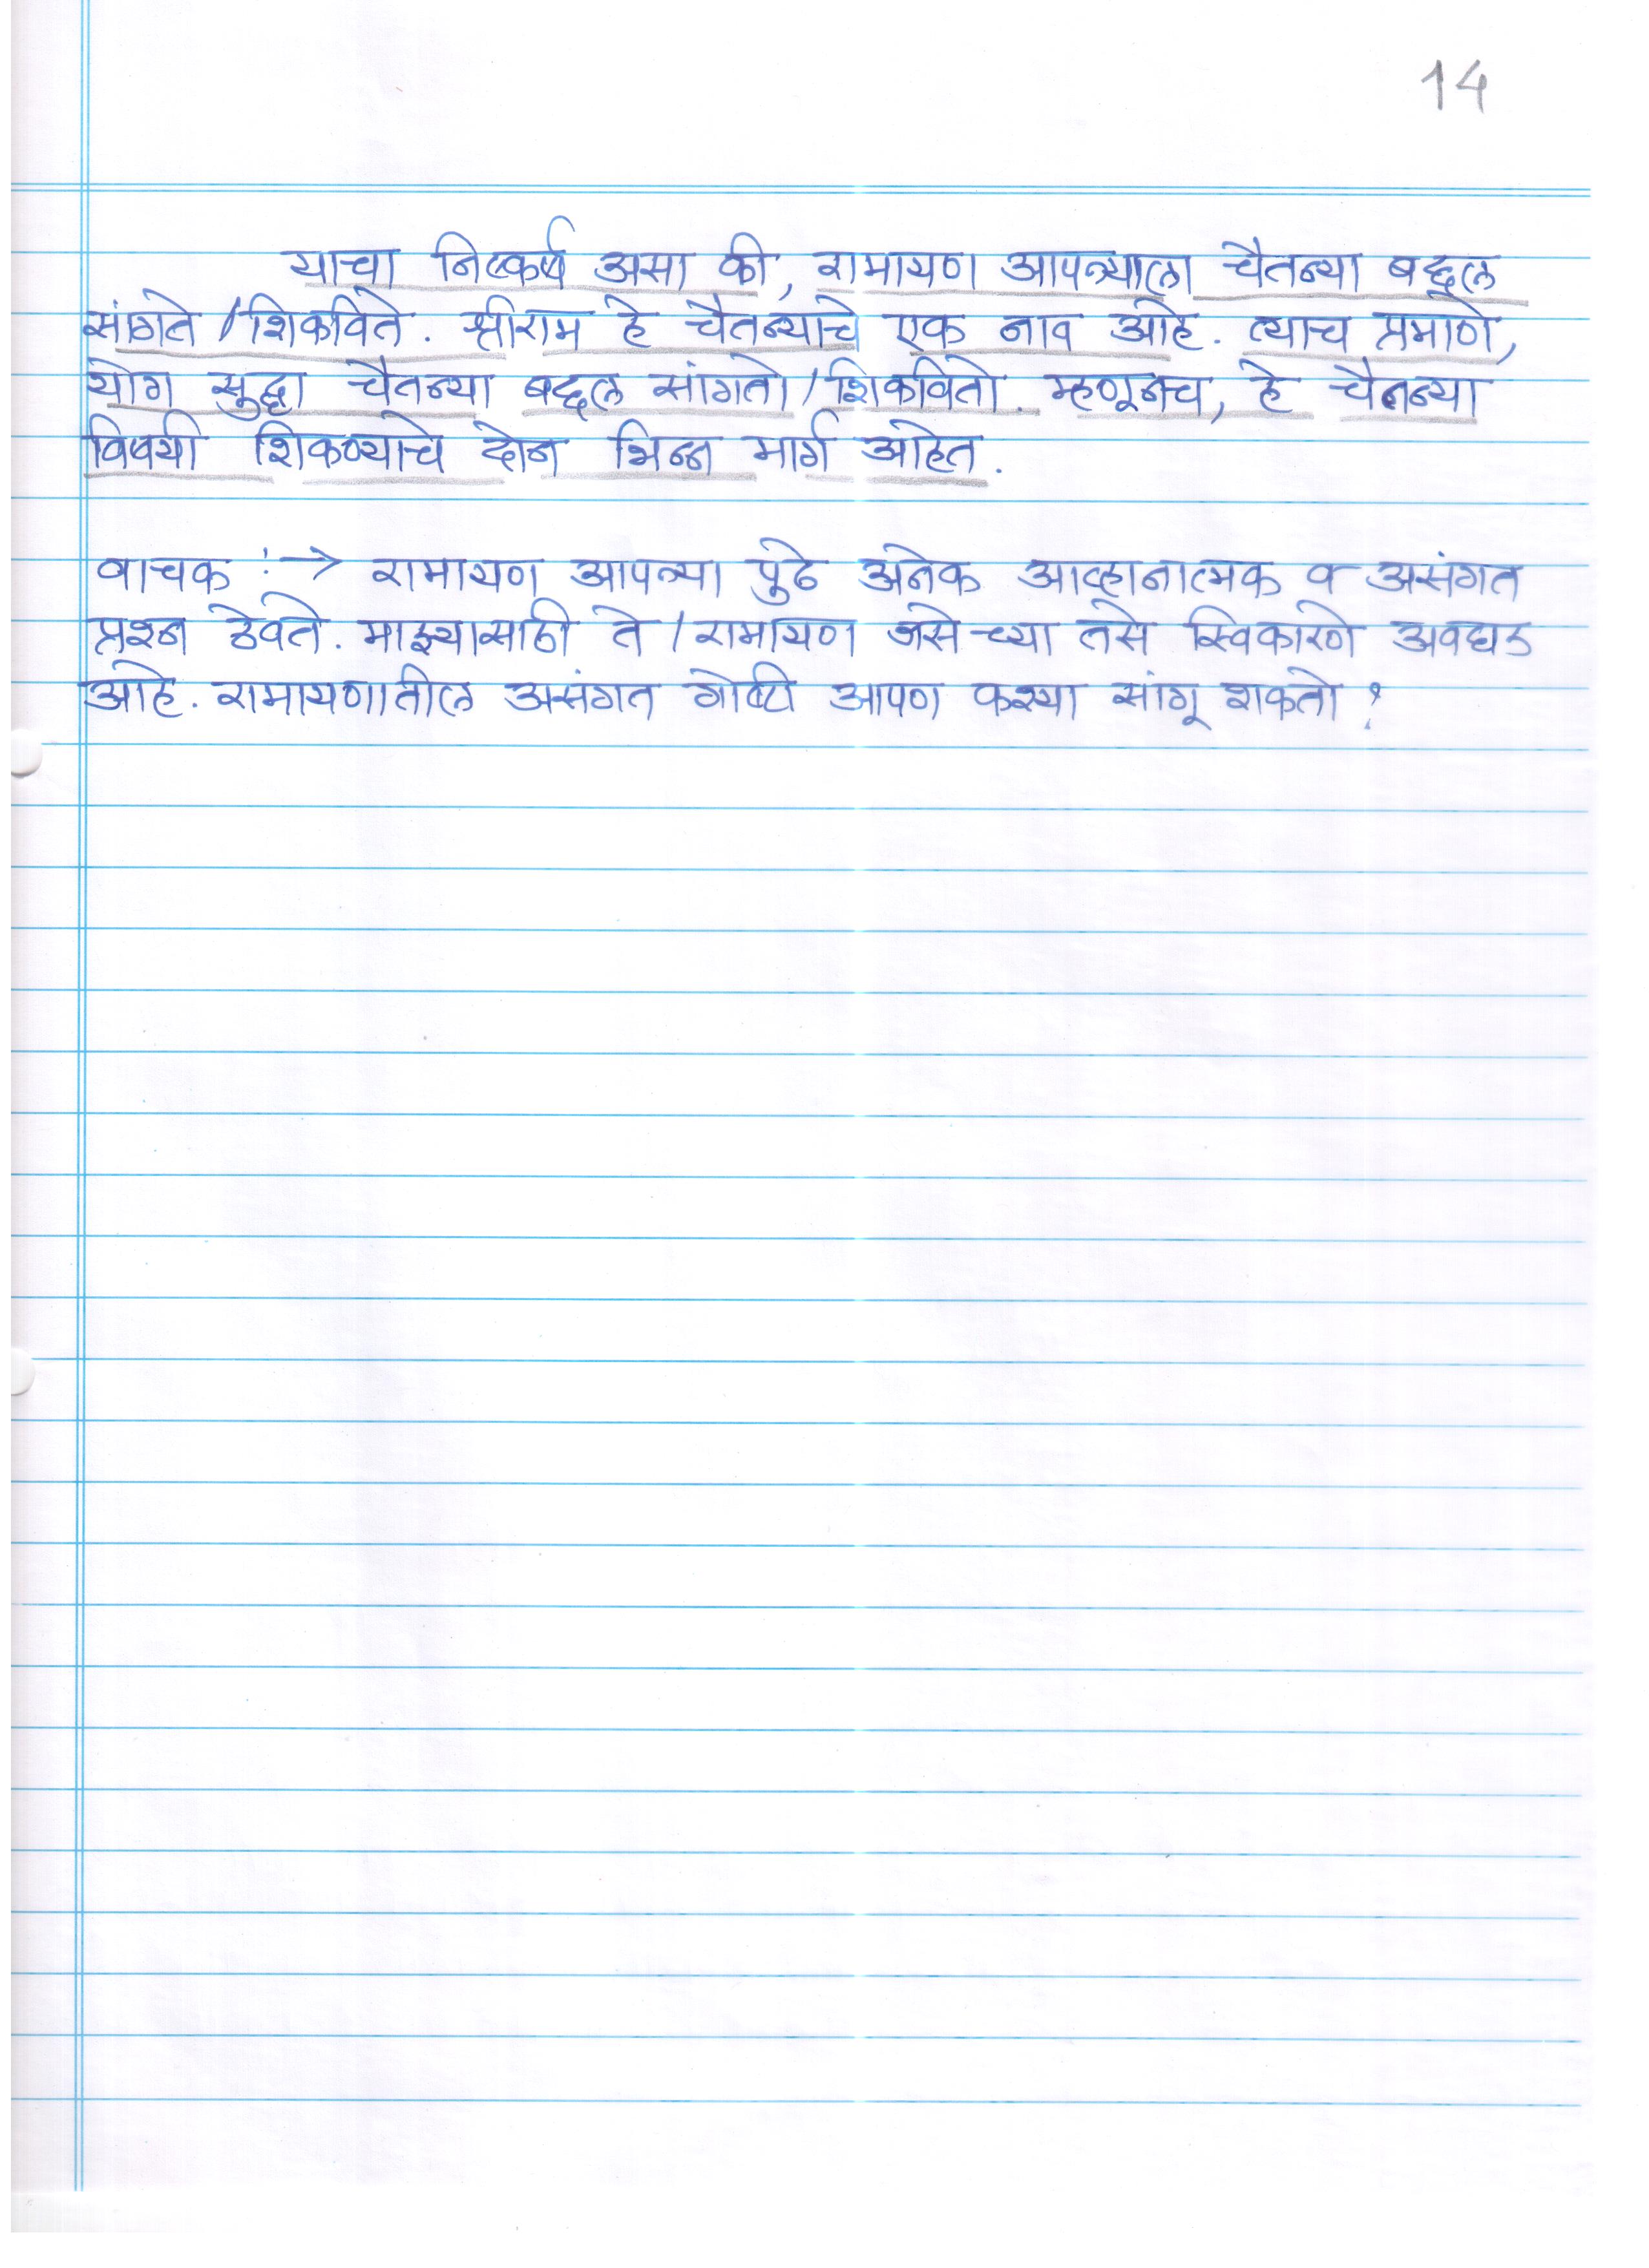 14
याचा निष्कर्ष असा की, रामायण आपल्याला चैतन्या बद्दल
सांगते / शिकविते. श्रीराम हे चैतन्याचे एक नाव आहे. त्याच प्रमाणे,
योग सुद्धा चैतन्या बद्दल सांगतो / शिकवितो. म्हणूनच, हे चैतन्या
विषयी शिकण्याचे दोन भिन्न मार्ग आहेत.
वाचक :→ रामायण आपल्या पुढे अनेक आव्हानात्मक व असंगत
प्रश्न ठेवते. माझ्यासाठी ते / रामायण जसे-च्या तसे स्विकारणे अवघड
आहे. रामायणातील असंगत गोष्टी आपण कश्या सांगू शकतो ?